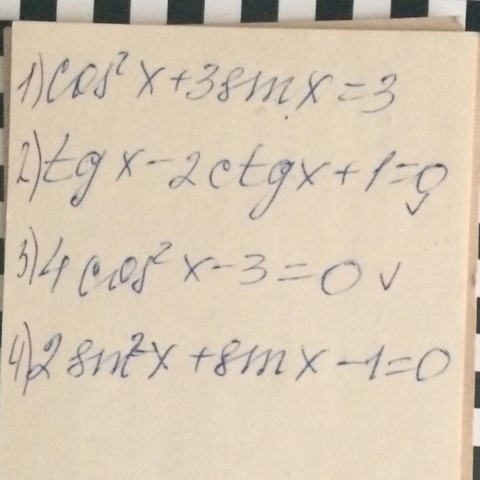 1) cos² x + 3 sin x = 3
2) tg x - 2 ctg x + 1 = 0
3) 4 cos² x - 3 = 0 ✓
4) 2 sin² x + sin x - 1 = 0